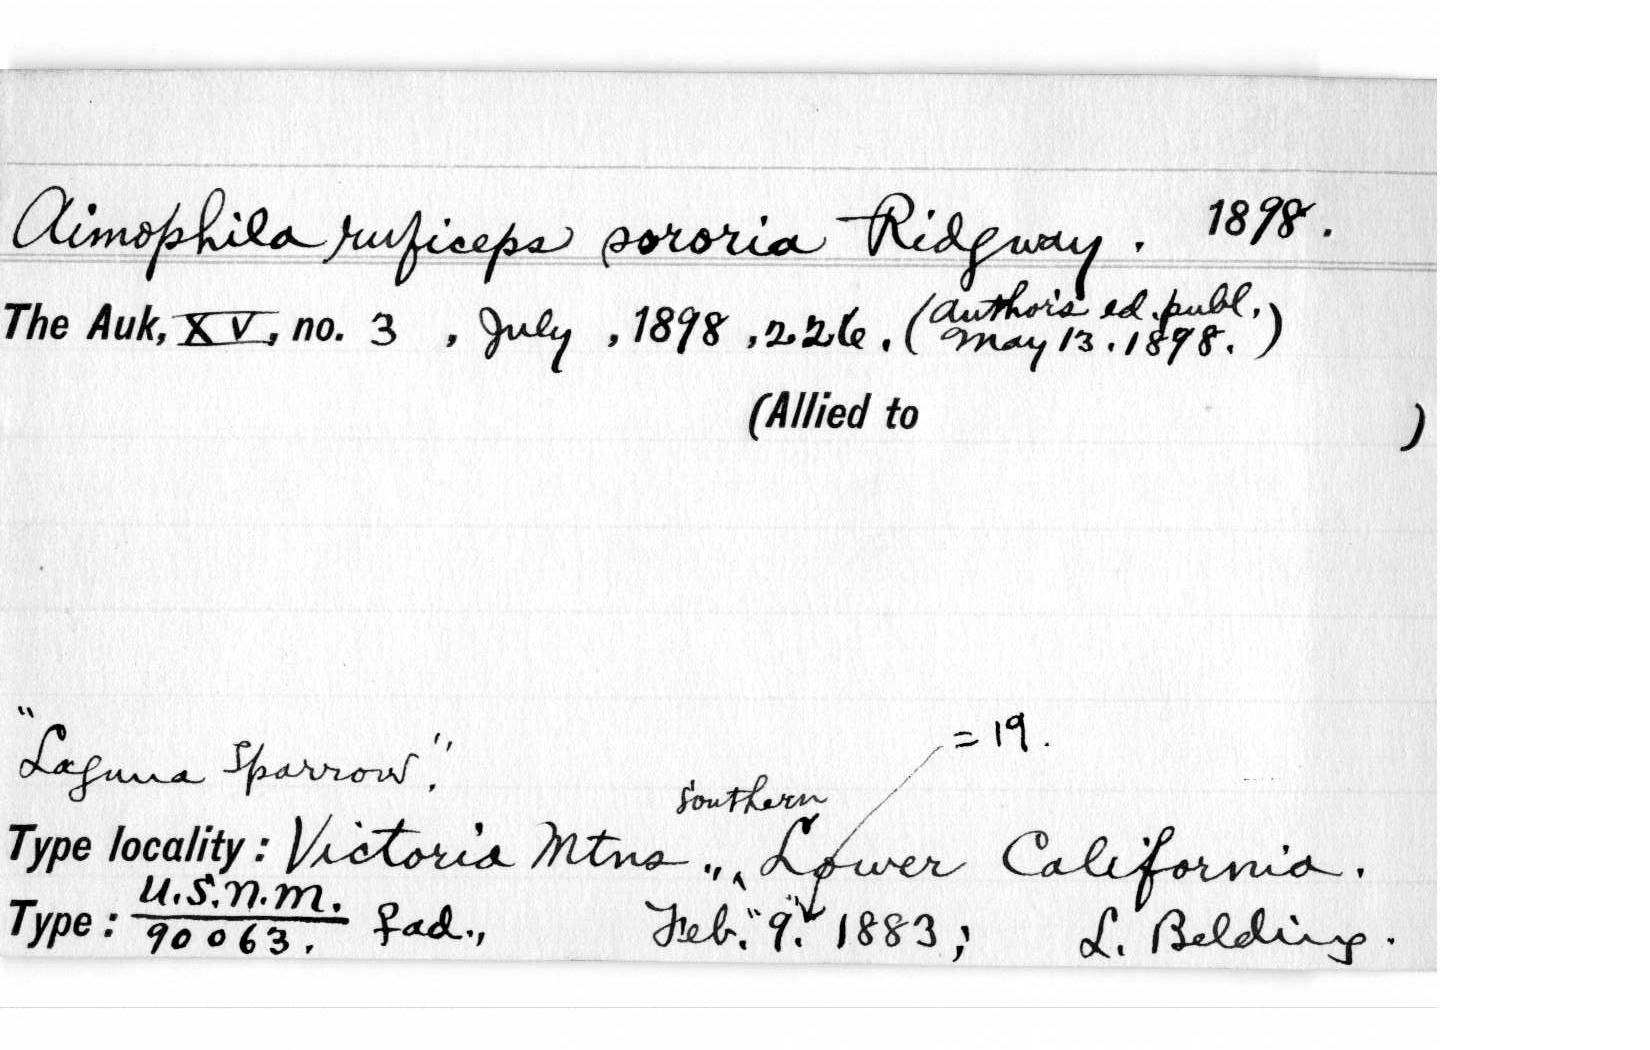 Aimophila ruficeps sororia Ridgway. 1898.
The Auk, XV, no. 3, July, 1898, 226. (Author's ed. publ.,
May 13. 1898.)
(Allied to )
= 19.
"Laguna Sparrow".
southern
Type locality: Victoria Mtns., Lower California.
U.S.N.M.
Type: 90063. ♀ad., Feb. "9". 1883; L. Belding.